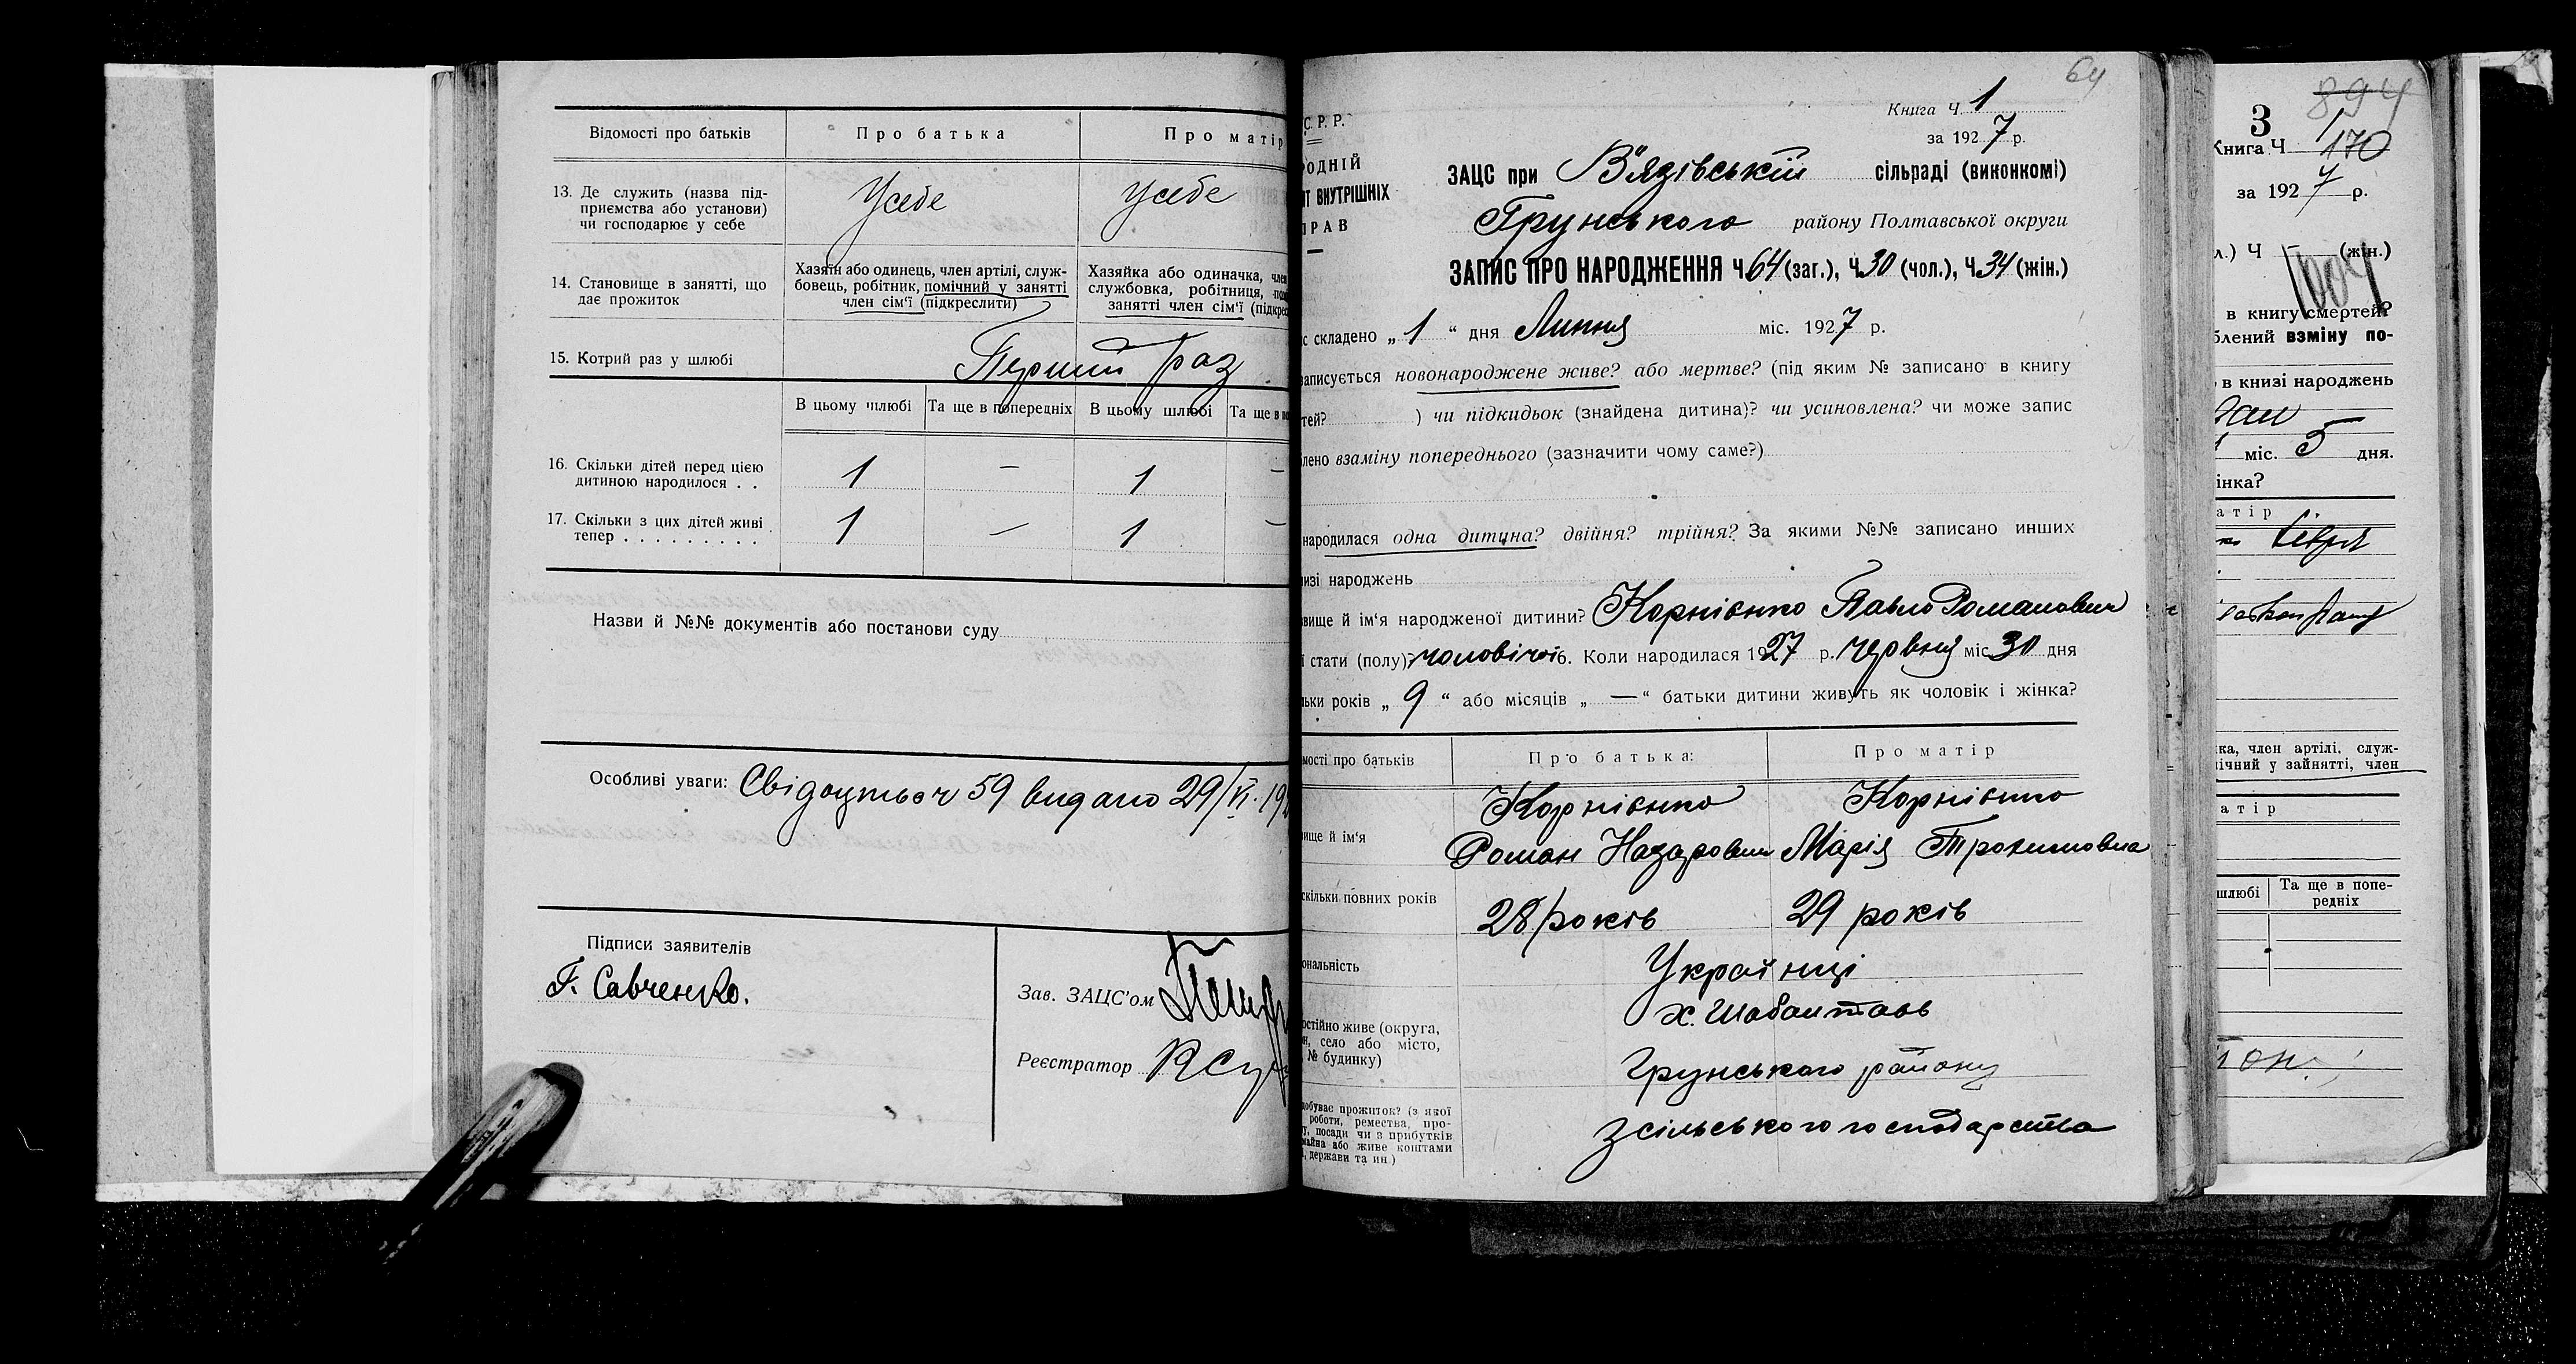 Відомості про батьків
Про батька
Про матір
13. Де служить (назва під-
приємства або установи)
чи господарює у себе
Усебе
Усебе
14. Становище в занятті, що
дає прожиток
Хазяїн або одинець, член артілі, служ-
бовець, робітник, помічний у занятті
член сім'ї (підкреслити)
Хазяйка або одиначка, член
службовка, робітниця,
занятті член сім'ї
15. Котрий раз у шлюбі
Перший раз
В цьому шлюбі
Та ще в попередніх
В цьому шлюбі
Та ще в
16. Скільки дітей перед цією
дитиною народилося . .
1 — 1 —
17. Скільки з цих дітей живі
тепер . . . . . . . . .
1 — 1 —
Назви й №№ документів або постанови суду
Особливі уваги: Свідоцтво ч 59 видано 29/VI. 19
Підписи заявителів
Г. Савченко.
Зав. ЗАЦС'ом
Реєстратор
64
Книга Ч. 1
за 1927 р.
С. Р. Р.
ОДНІЙ
ВНУТРІШНІХ
РАВ
ЗАЦС при В'язівській сільраді (виконкомі)
Грунського району Полтавської округи
ЗАПИС ПРО НАРОДЖЕННЯ Ч 64 (заг.), Ч 30 (чол.), Ч 34 (жін.)
с складено „ 1 “ дня Липня міс. 1927 р.
записується новонароджене живе? або мертве? (під яким № записано в книгу
тей? ) чи підкидьок (знайдена дитина)? чи усиновлена? чи може запис
лено взаміну попереднього (зазначити чому саме?)
народилася одна дитина? двійня? трійня? За якими №№ записано инших
изі народжень
вище й ім'я народженої дитини? Корнієнко Павло Романович
ї стати (полу)? чоловічої 6. Коли народилася 1927 р. червня міс. 30 дня
льки років „ 9 “ або місяців „ — “ батьки дитини живуть як чоловік і жінка?
мості про батьків
Про батька:
Про матір
вище й ім'я
Корнієнко
Роман Назарович
Корнієнко
Марія Трохимовна
скільки повних років
28 років
29 років
ональність
Українці
остійно живе (округа,
н, село або місто,
№ будинку)
х. Шабалтаєв
Грунського району
добуває прожиток? (з якої
роботи, ремества, про-
у, посади чи з прибутків
майна або живе коштами
, держави та ин.)
з сільського господарства
894
3
Книга Ч 1/170
за 1927 р.
л.) Ч — (жін.)
в книгу смертей?
блений взміну по-
в книзі народжень
міс. 5 дня.
інка?
атір
ка, член артілі, служ-
мічний у зайнятті, член
атір
шлюбі
Та ще в попе-
редніх